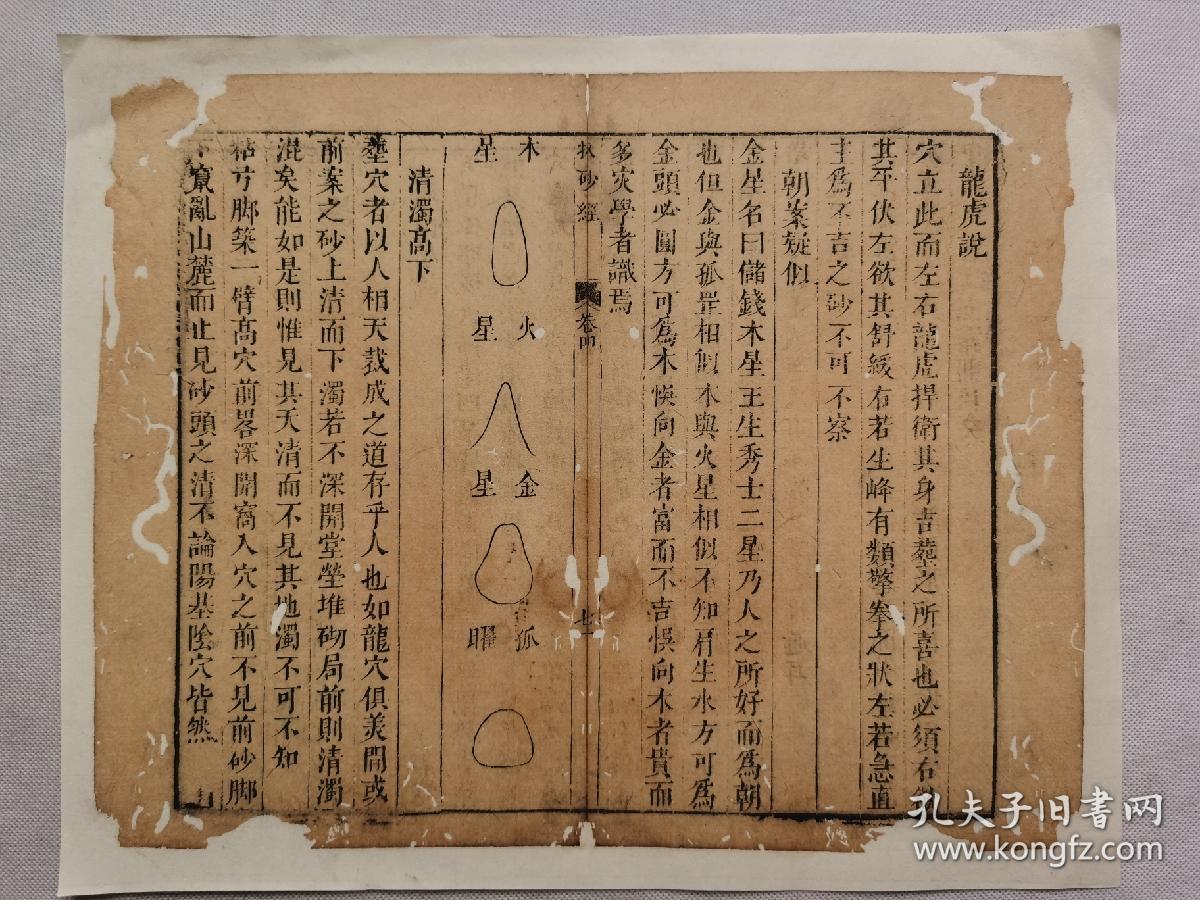 龍虎說
穴立此而左右龍虎捍衛其身吉塟之所喜也必須右
其平伏左欲其舒緩右若生峰有類擎拳之狀左若急直
主爲不吉之砂不可不察
朝案疑似
金星名曰儲錢木星王生秀士二星乃人之所好而爲朝
也但金與孤罡相似木與火星相似不知肩生水方可爲
金頭必圓方可爲木悞向金者富而不吉悞向木者貴而
多灾學者識焉
砂經
卷四
七
木星
火星
金星
孤曜
清濁高下
塟穴者以人相天裁成之道存乎人也如龍穴俱美間或
前案之砂上清而下濁若不深開堂塋堆砌局前則清濁
混矣能如是則惟見其天清而不見其地濁不可不知
粘寸脚築一臂高穴前畧深開窩入穴之前不見前砂脚
亂山麓而止見砂頭之清不論陽基陰穴皆然
孔夫子旧书网
www.kongfz.com